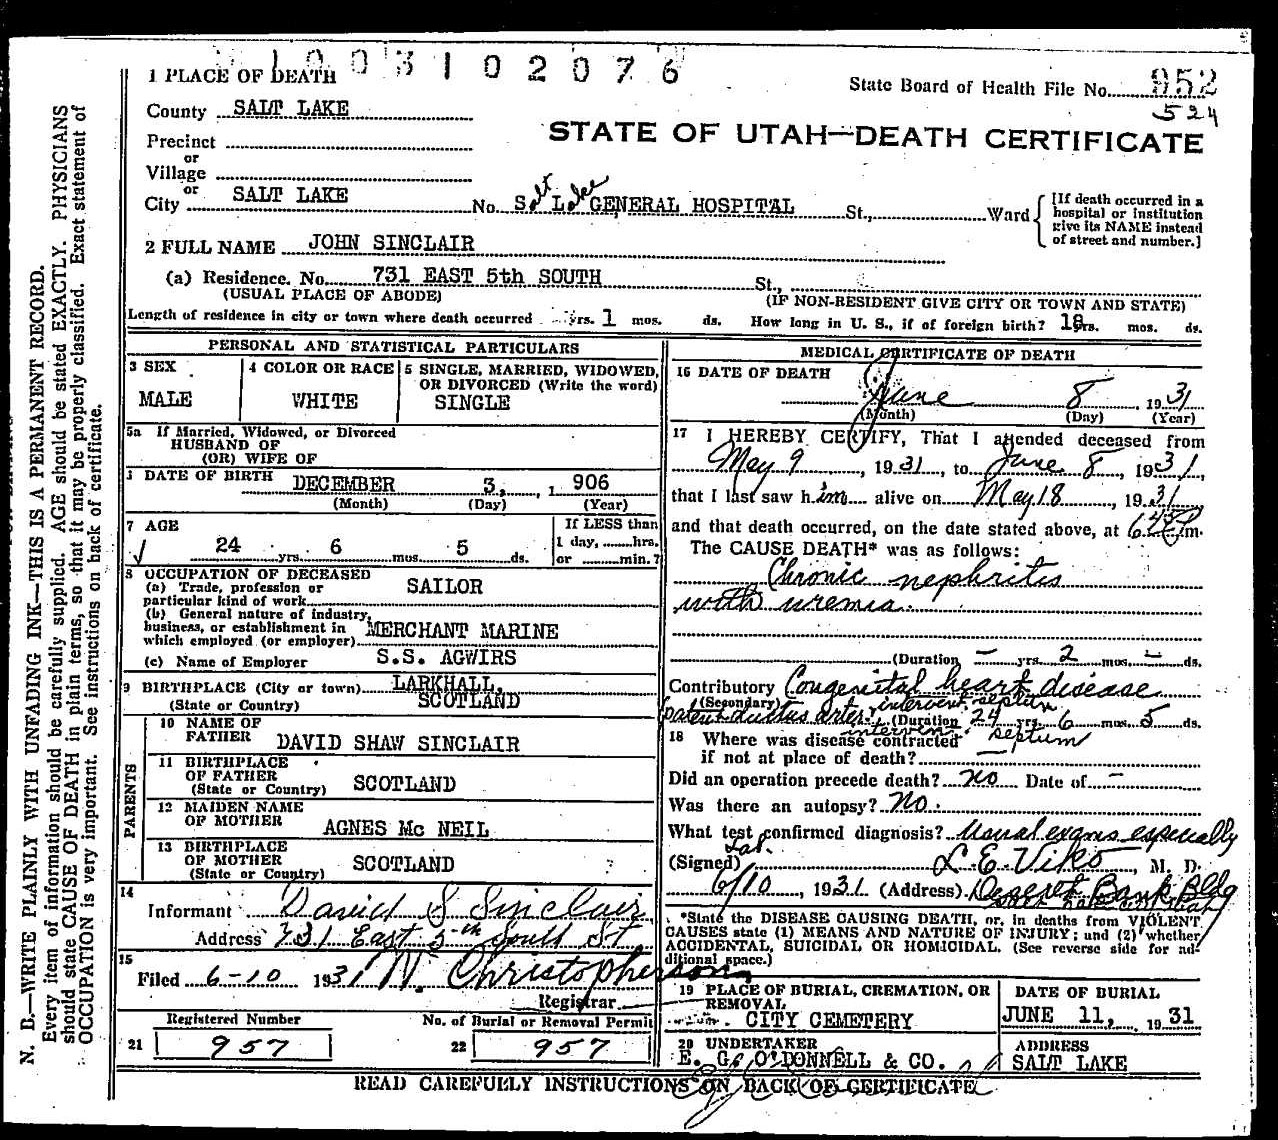 1003102076
1 PLACE OF DEATH
State Board of Health File No. 952
524
County SALT LAKE
STATE OF UTAH—DEATH CERTIFICATE
Precinct
or
Village
or
City SALT LAKE No. Salt Lake GENERAL HOSPITAL St., Ward
[If death occurred in a hospital or institution give its NAME instead of street and number.]
2 FULL NAME JOHN SINCLAIR
(a) Residence. No. 731 EAST 5th SOUTH St.,
(USUAL PLACE OF ABODE) (IF NON-RESIDENT GIVE CITY OR TOWN AND STATE)
Length of residence in city or town where death occurred yrs. 1 mos. ds. How long in U. S., if of foreign birth? 18 yrs. mos. ds.
PERSONAL AND STATISTICAL PARTICULARS
3 SEX
MALE
4 COLOR OR RACE
WHITE
5 SINGLE, MARRIED, WIDOWED, OR DIVORCED (Write the word)
SINGLE
5a If Married, Widowed, or Divorced
HUSBAND OF
(OR) WIFE OF
DATE OF BIRTH DECEMBER 3, 1906
(Month) (Day) (Year)
7 AGE
24 yrs. 6 mos. 5 ds.
If LESS than
1 day, hrs.
or min.?
8 OCCUPATION OF DECEASED
(a) Trade, profession or
particular kind of work SAILOR
(b) General nature of industry,
business, or establishment in
which employed (or employer) MERCHANT MARINE
(c) Name of Employer S.S. AGWIRS
9 BIRTHPLACE (City or town) LARKHALL,
(State or Country) SCOTLAND
PARENTS
10 NAME OF
FATHER DAVID SHAW SINCLAIR
11 BIRTHPLACE
OF FATHER
(State or Country) SCOTLAND
12 MAIDEN NAME
OF MOTHER AGNES Mc NEIL
13 BIRTHPLACE
OF MOTHER
(State or Country) SCOTLAND ?
14
Informant David S Sinclair
Address 731 East 5th South St
15
Filed 6-10 1931 N. Christopherson
Registrar
Registered Number
21 957
No. of Burial or Removal Permit
22 957
MEDICAL CERTIFICATE OF DEATH
16 DATE OF DEATH
June 8, 1931
(Month) (Day) (Year)
17 I HEREBY CERTIFY, That I attended deceased from
May 9, 1931, to June 8, 1931,
that I last saw him alive on May 18 1931
and that death occurred, on the date stated above, at 6 45 P m.
The CAUSE DEATH* was as follows:
Chronic nephritis
with uremia.
(Duration – yrs. 2 mos. – ds.
Contributory Congenital heart disease
(Secondary)
patent ductus arter. + intervent. septum
(Duration 24 yrs. 6 mos. 5 ds.
18 Where was disease contracted
if not at place of death?
Did an operation precede death? No Date of –
Was there an autopsy? No.
What test confirmed diagnosis? Usual exams especially
Lab.
(Signed) L. E. Viko, M. D.
6/10, 1931 (Address) Deseret Bank Bldg
*State the DISEASE CAUSING DEATH, or, in deaths from VIOLENT
CAUSES state (1) MEANS AND NATURE OF INJURY; and (2) whether
ACCIDENTAL, SUICIDAL OR HOMICIDAL. (See reverse side for ad-
ditional space.)
19 PLACE OF BURIAL, CREMATION, OR
REMOVAL
CITY CEMETERY
DATE OF BURIAL
JUNE 11, 1931
20 UNDERTAKER
E. G. O'DONNELL & CO.
ADDRESS
SALT LAKE
READ CAREFULLY INSTRUCTIONS ON BACK OF CERTIFICATE
N. B.—WRITE PLAINLY WITH UNFADING INK—THIS IS A PERMANENT RECORD.
Every item of information should be carefully supplied. AGE should be stated EXACTLY. PHYSICIANS
should state CAUSE OF DEATH in plain terms, so that it may be properly classified. Exact statement of
OCCUPATION is very important. See instructions on back of certificate.